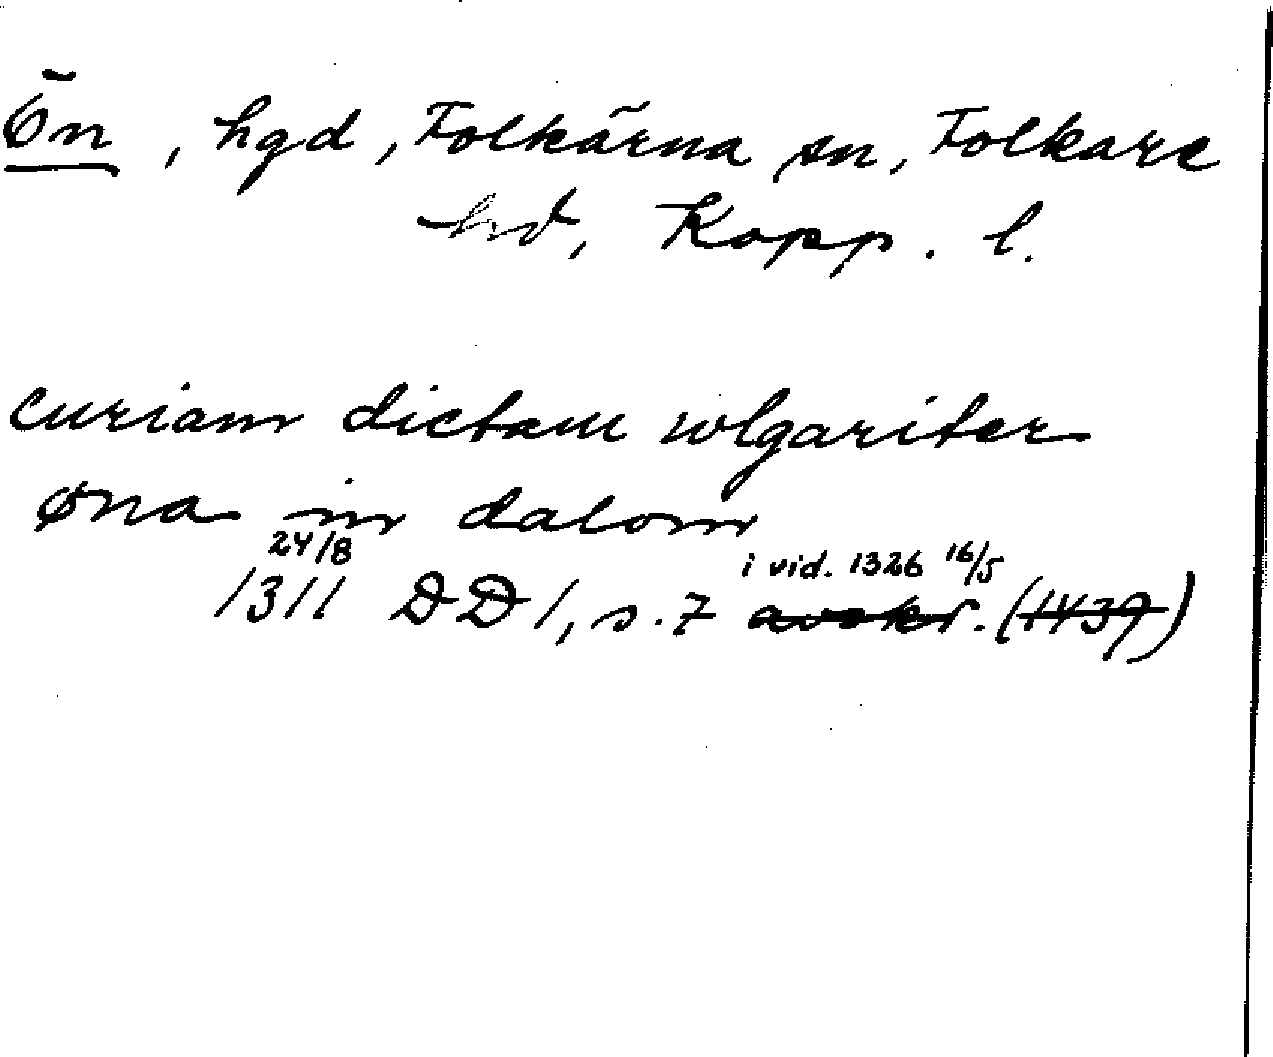 Ön, hgd, Folkärna sn, Folkare
hd, Kopp. l.
curiam dictam wlgariter
øna in dalom
24/8
i vid. 1326 16/5
1311 DD 1, s. 7 avskr. (1439)